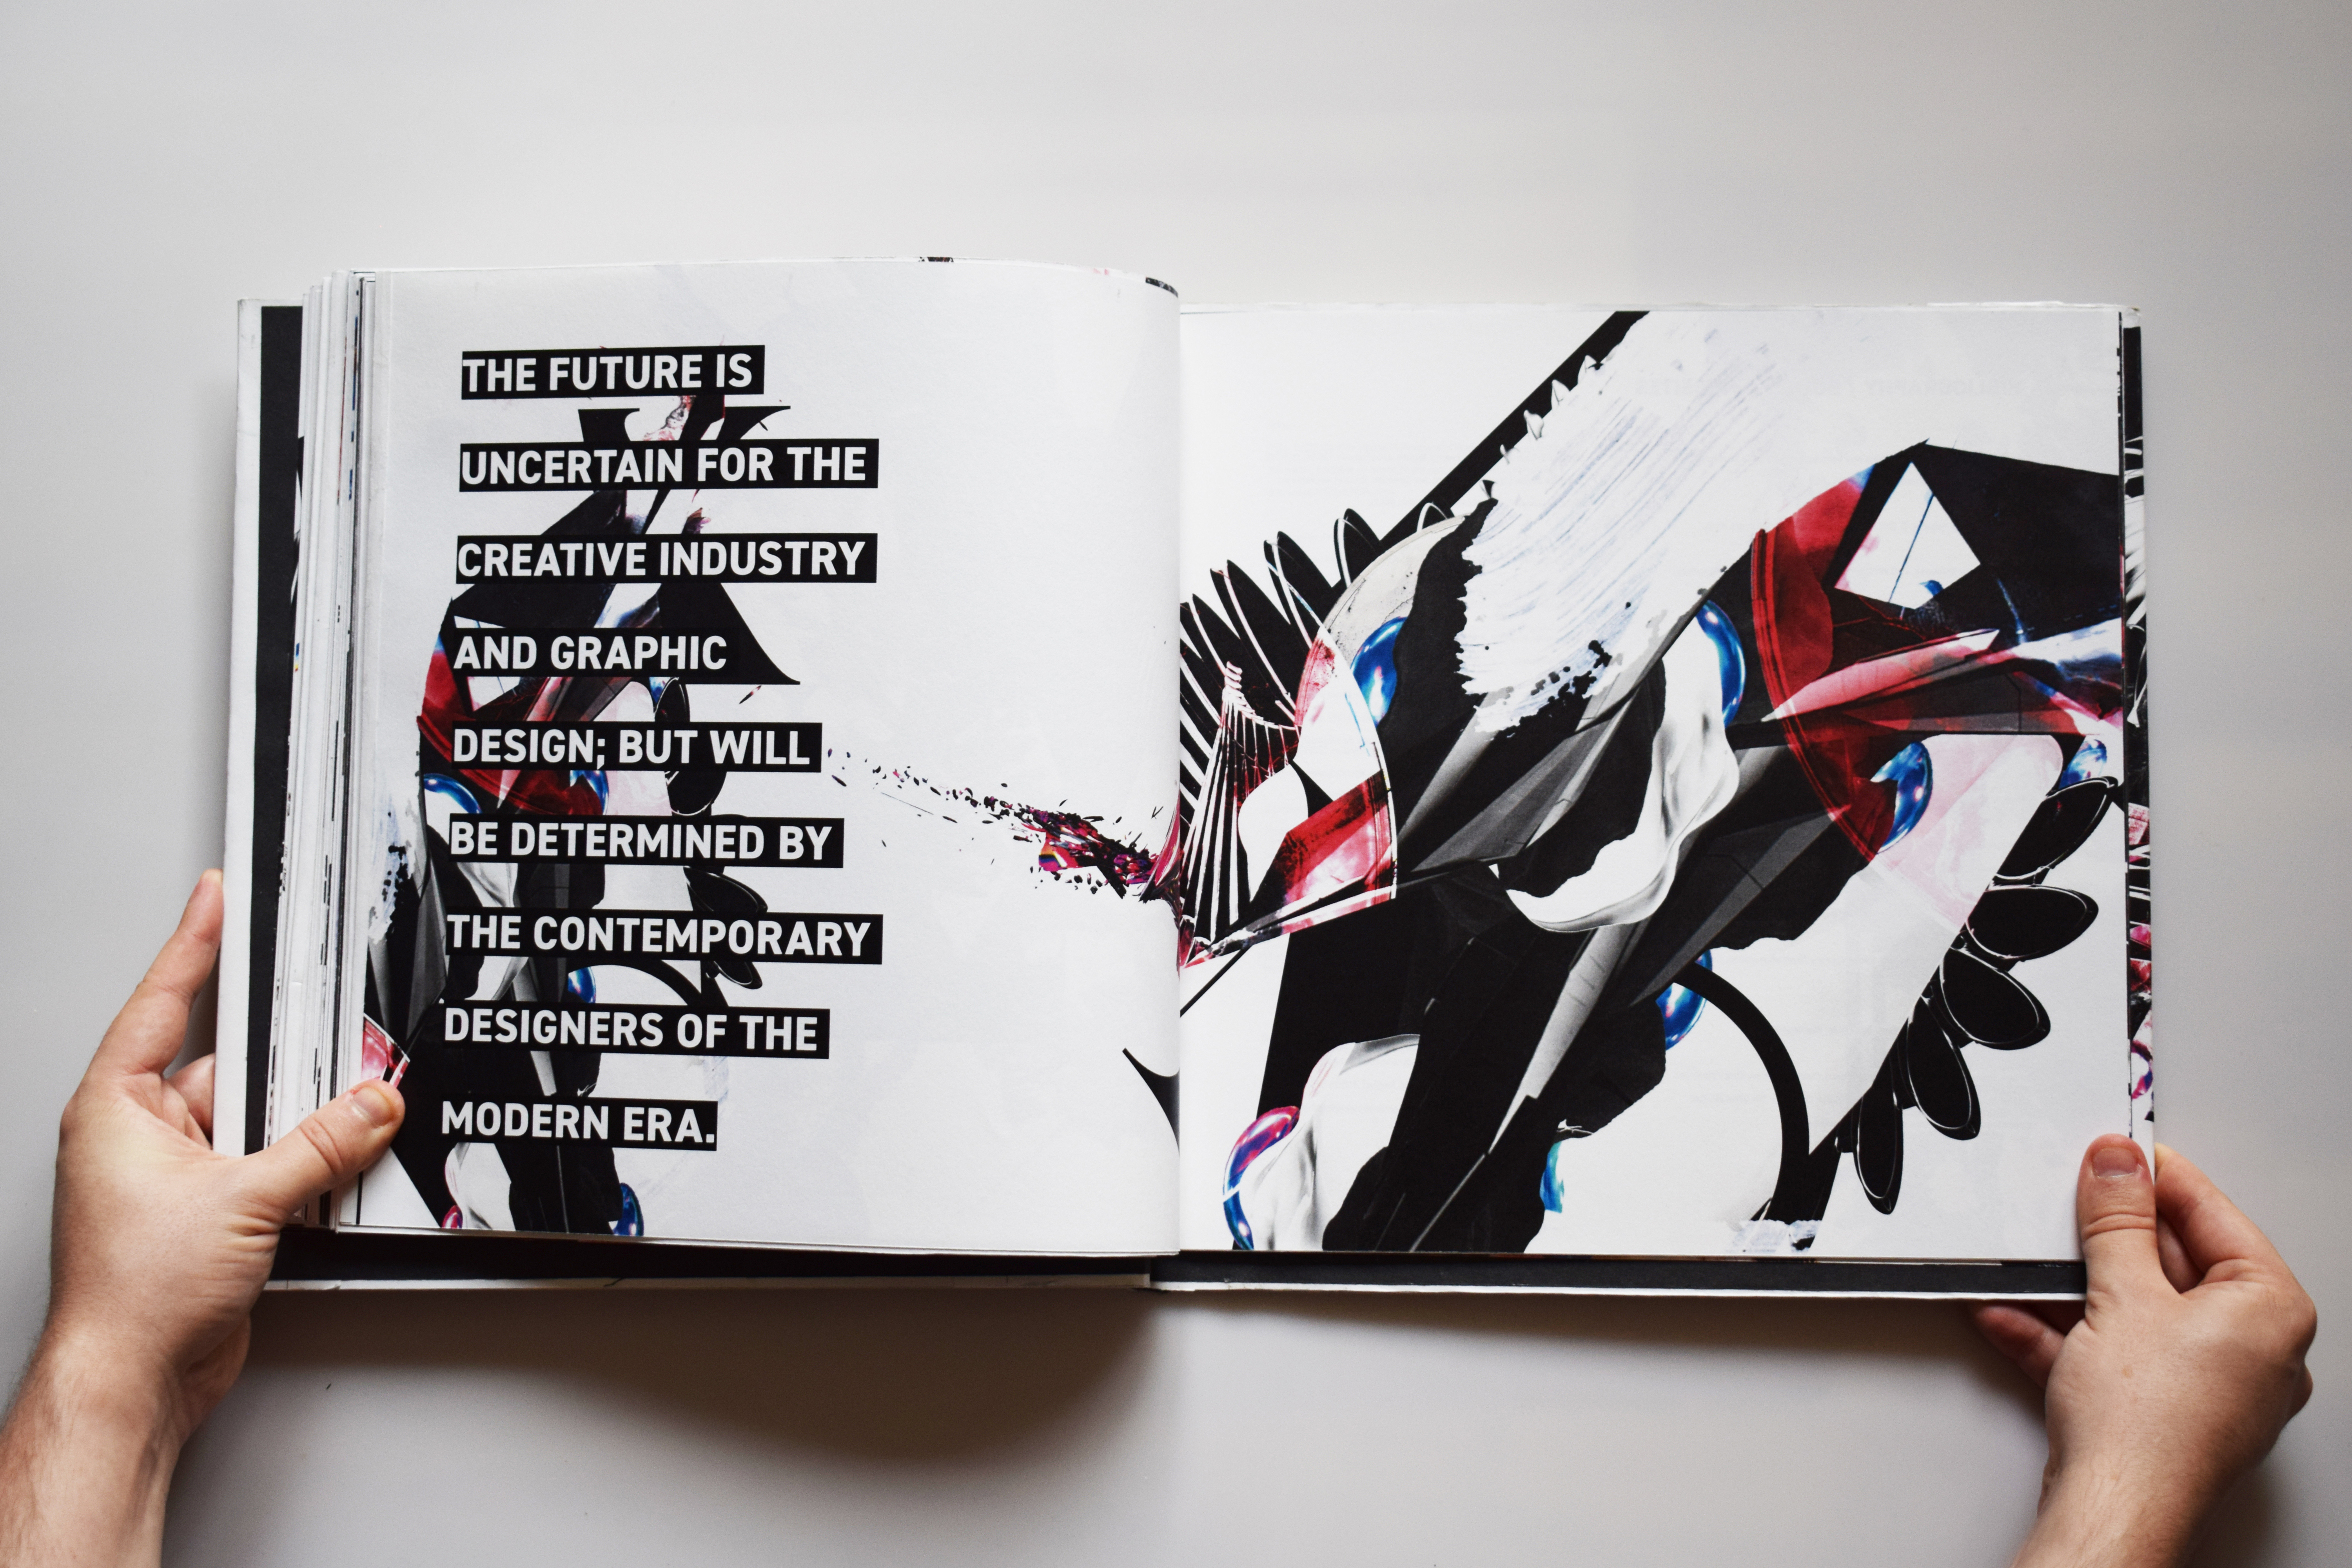 THE FUTURE IS
UNCERTAIN FOR THE
CREATIVE INDUSTRY
AND GRAPHIC
DESIGN; BUT WILL
BE DETERMINED BY
THE CONTEMPORARY
DESIGNERS OF THE
MODERN ERA.